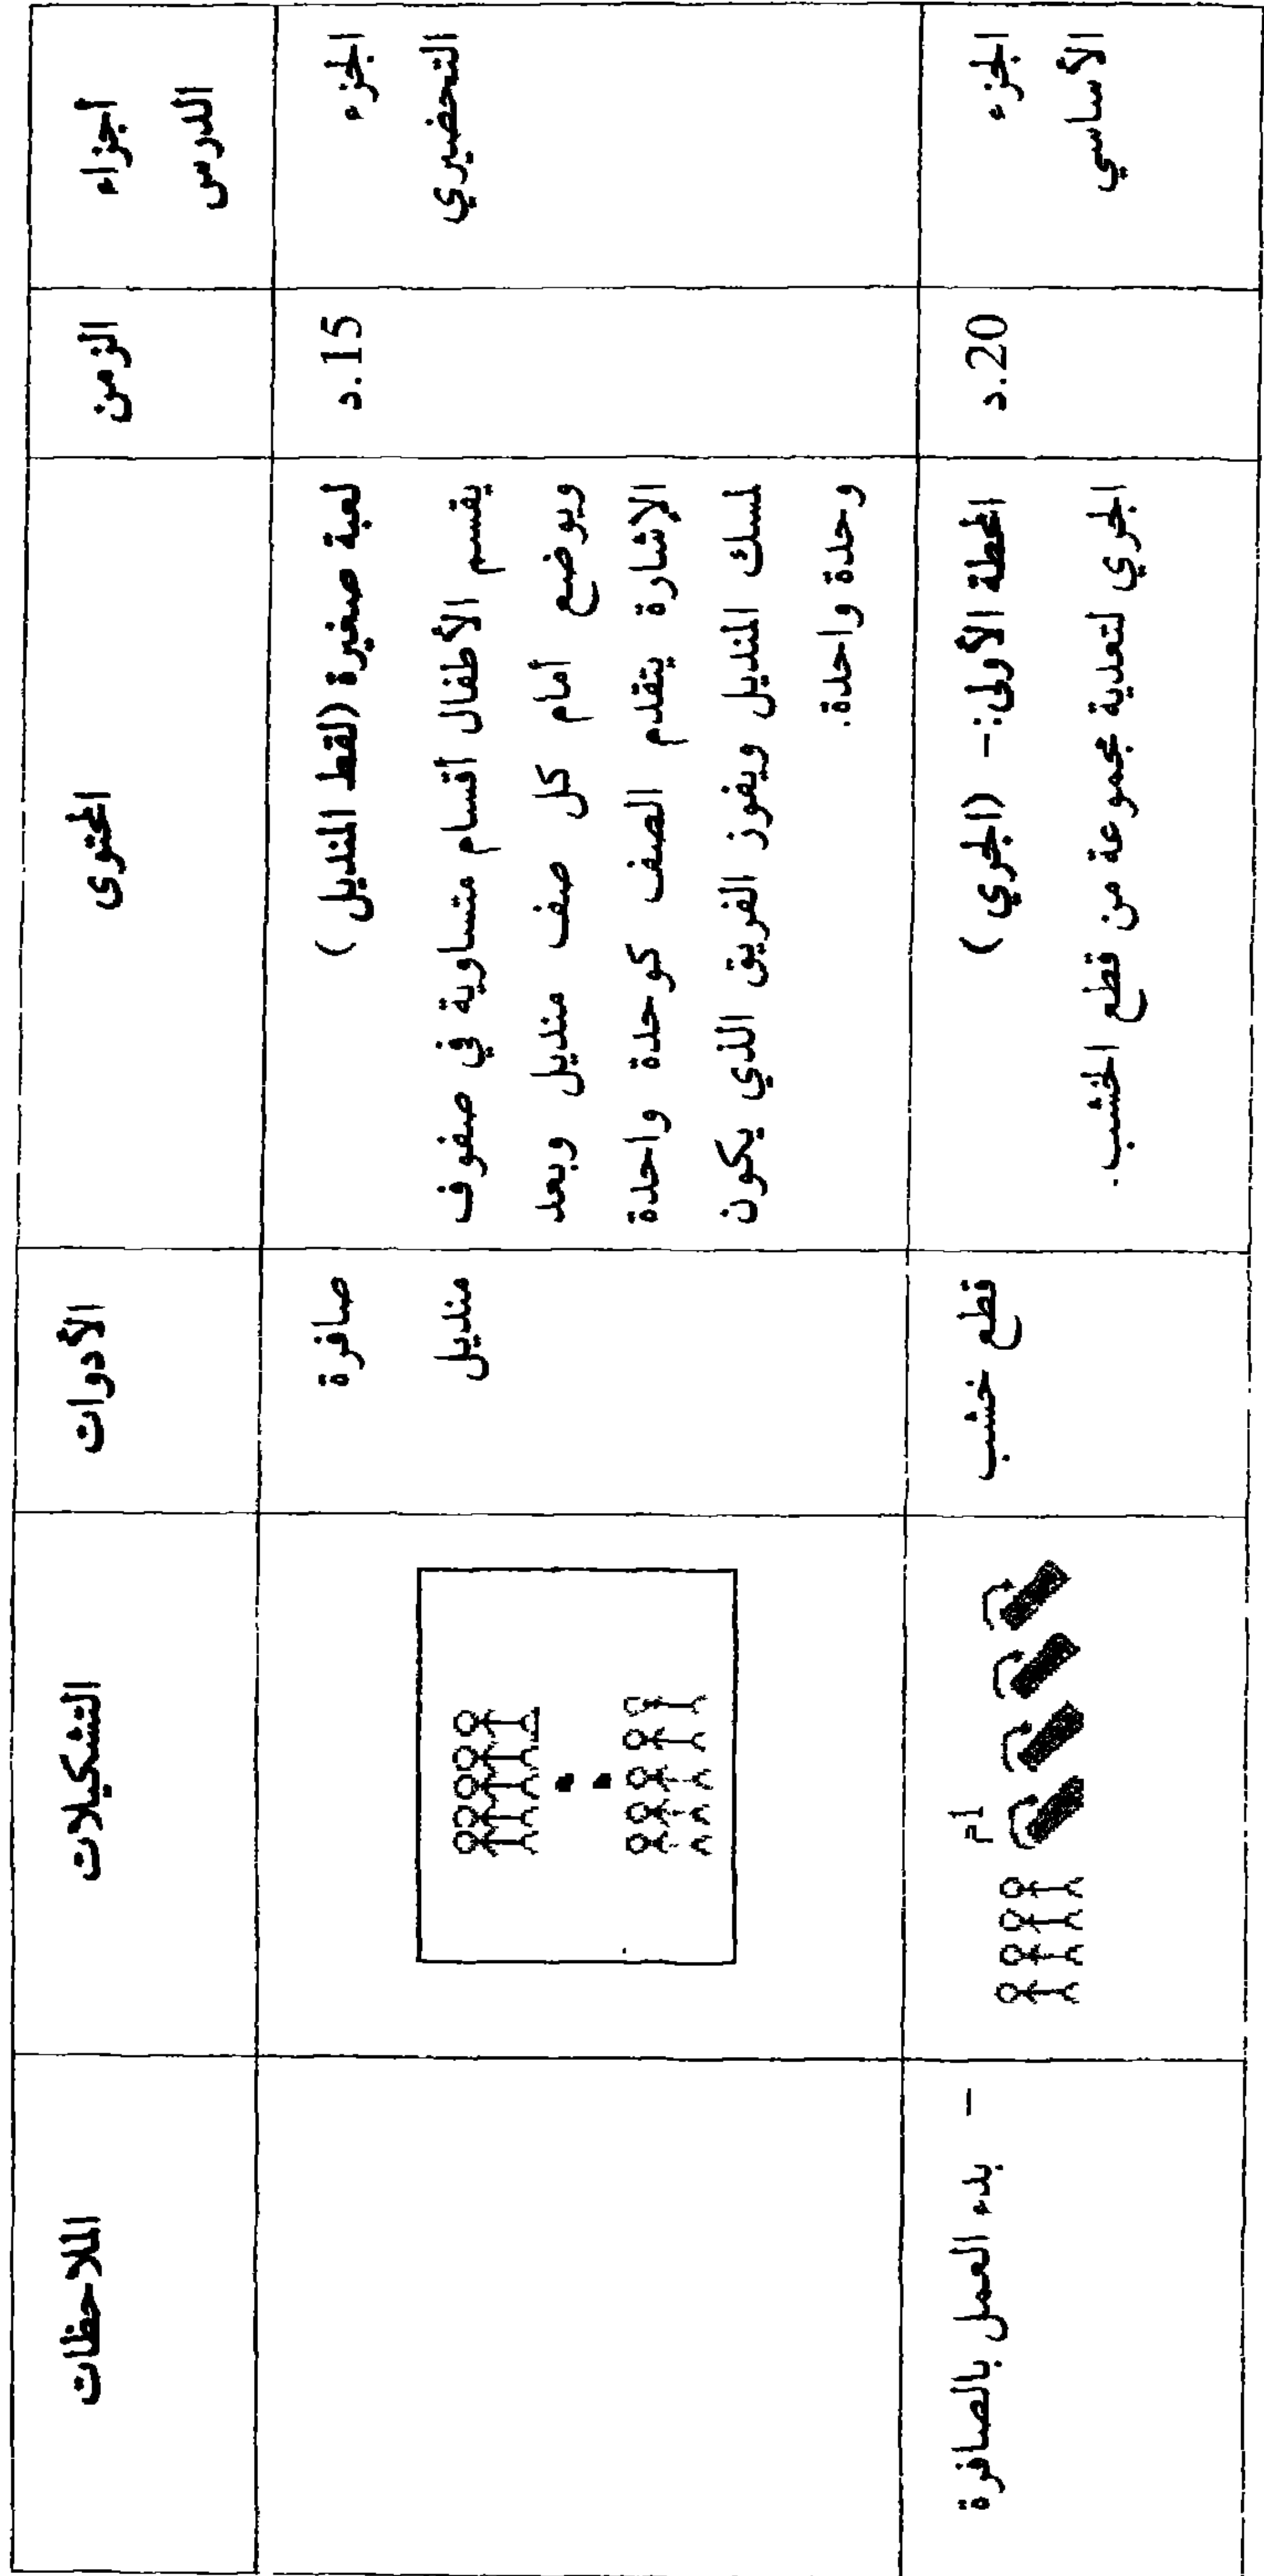 أجزاء
الدرس
الزمن
المحتوى
الأدوات
التشكيلات
الملاحظات
الجزء
التحضيري
15.د
لعبة صغيرة (لقط المنديل )
يقسم الأطفال أقسام متساوية في صفوف
ويوضع أمام كل صف منديل وبعد
الإشارة يتقدم الصف كوحدة واحدة
لمسك المنديل ويفوز الفريق الذي يكون
وحدة واحدة.
صافرة
منديل
الجزء
الأساسي
20.د
المحطة الأولى:– (الجري )
الجري لتعدية مجموعة من قطع الخشب.
قطع خشب
م1
– بدء العمل بالصافرة